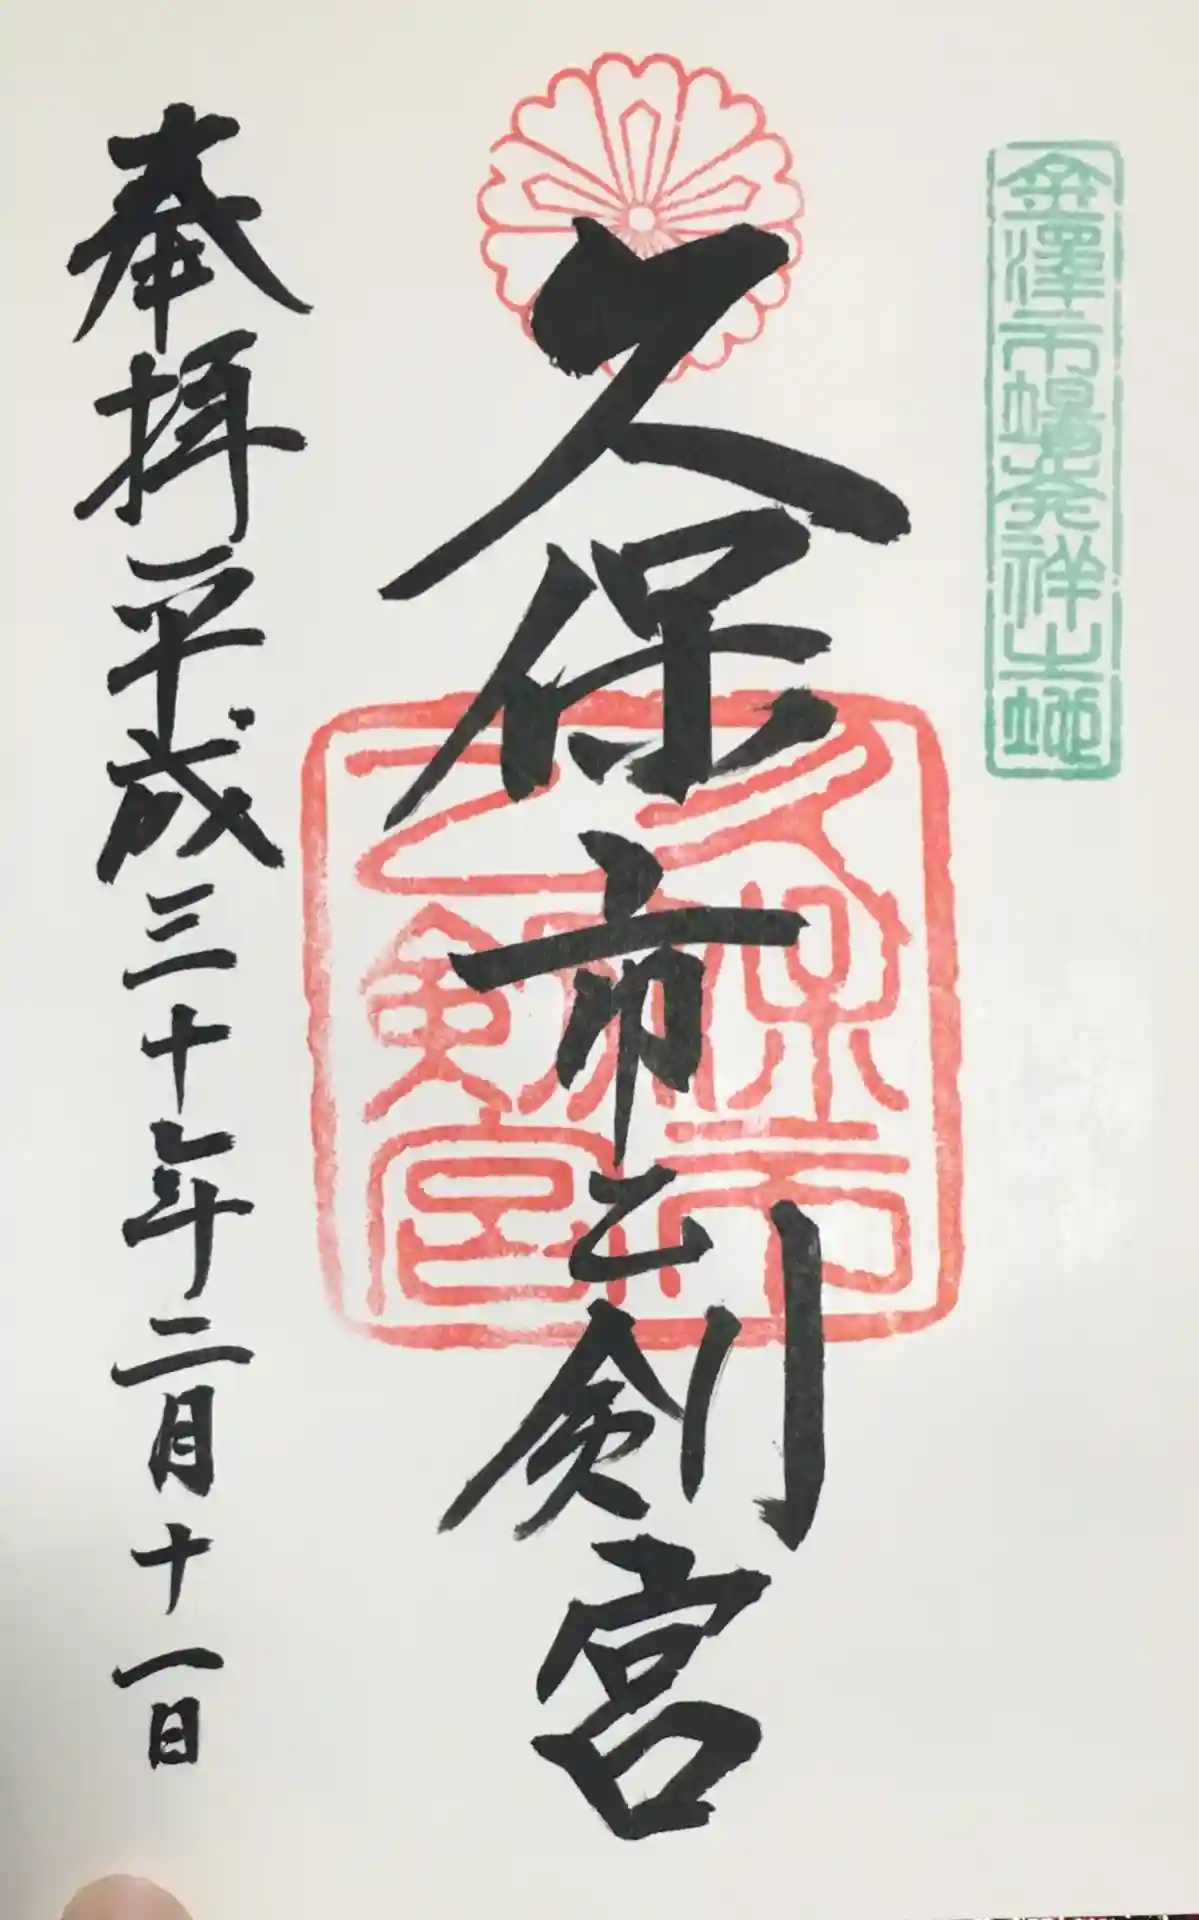 金澤市場発祥之地
久保市乙剣宮
久保市
乙剣宮
奉拝 平成三十年二月十一日